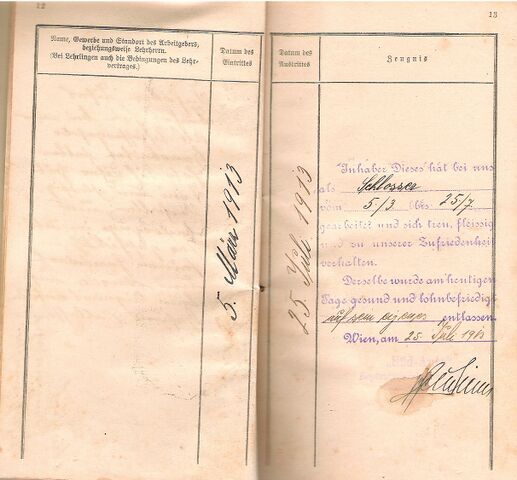 12
Name, Gewerbe und Standort des Arbeitgebers,
beziehungsweise Lehrherrn.
(Bei Lehrlingen auch die Bedingungen des Lehr-
vertrages.)
Datum des
Eintrittes
5. März 1913
13
Datum des
Austrittes
Zeugnis
25. Juli 1913
Inhaber Dieses hat bei uns
als Schlosser
vom 5/3 bis 25/7
gearbeitet und sich treu, fleissig
und zu unserer Zufriedenheit
verhalten.
Derselbe wurde am heutigen
Tage gesund und lohnbefriedigt
entlassen
Wien, am 25. Juli 1913